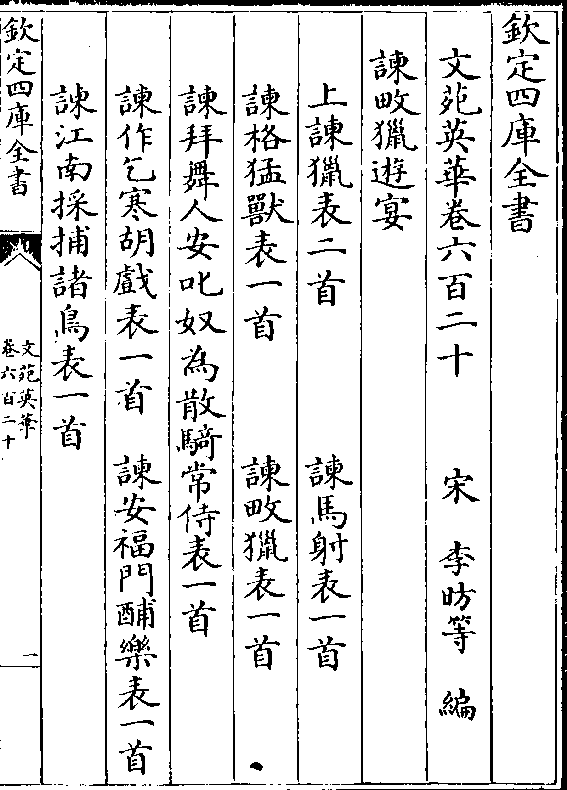 欽定四庫全書
文苑英華卷六百二十　宋　李昉等　編
諫畋獵遊宴
上諫獵表二首　諫馬射表一首
諫格猛獸表一首　諫畋獵表一首
諫拜舞人安叱奴為散騎常侍表一首
諫作乞寒胡戲表一首　諫安福門酺樂表一首
諫江南採捕諸鳥表一首
欽定四庫全書
文苑英華
卷六百二十
一